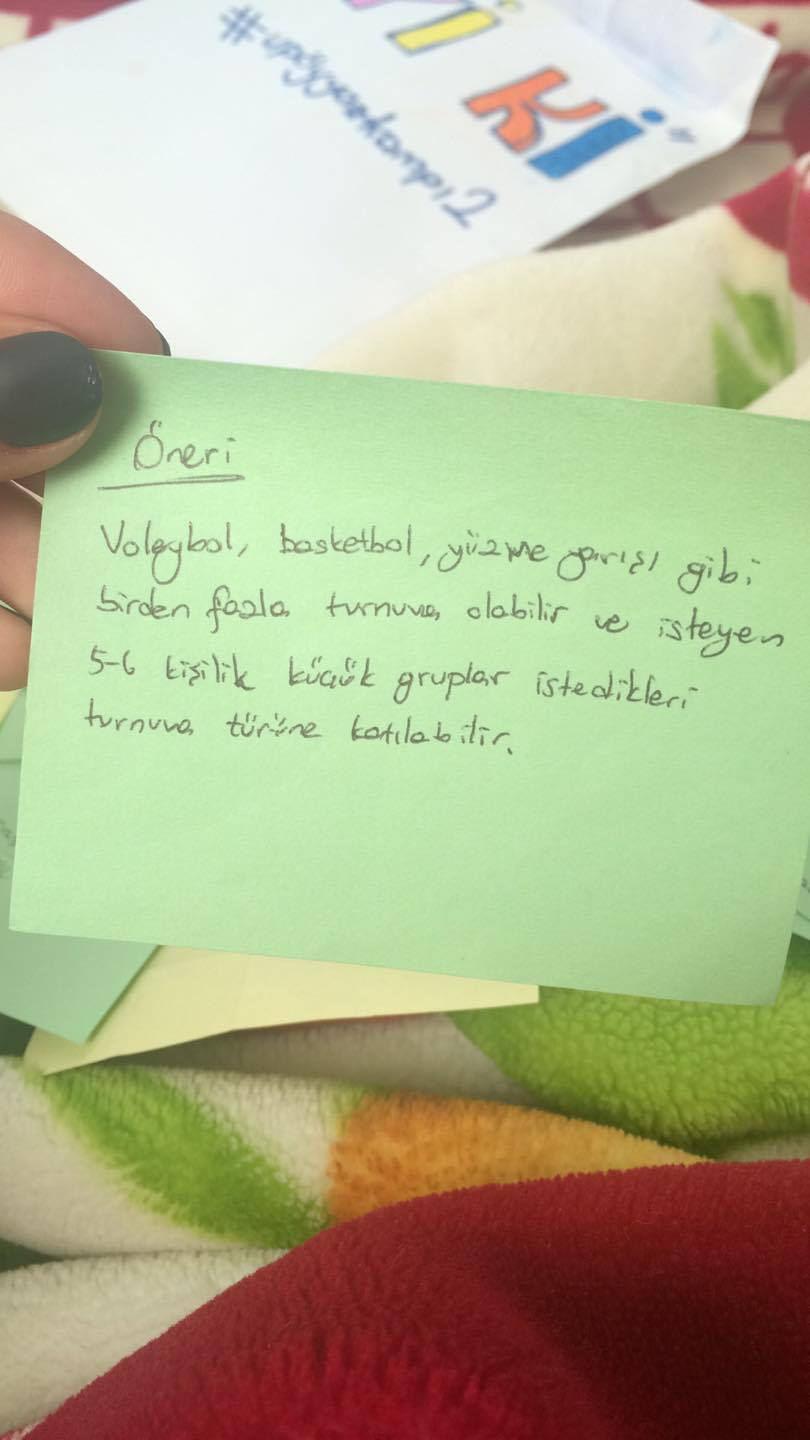 Ki
Öneri
Voleybol, basketbol, yüzme yarışı gibi
birden fazla turnuva olabilir ve isteyen
5-6 kişilik küçük gruplar istedikleri
turnuva türüne katılabilir.